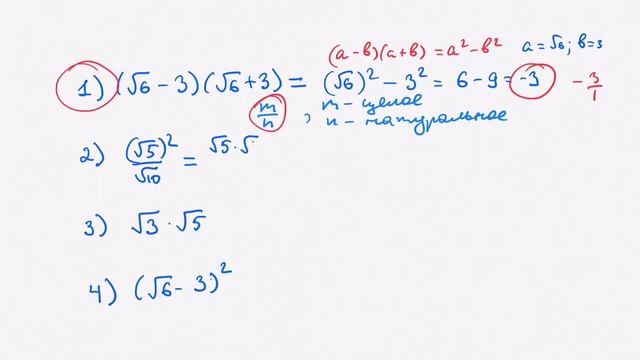 (a-b)(a+b) = a²-b² a=√6; b=3
1) (√6 - 3)(√6+3) = (√6)² - 3² = 6-9 = -3 -3/1
m/n, m - целое
n - натуральное
2) (√5)²/√10 = √5·√
3) √3 · √5
4) (√6 - 3)²